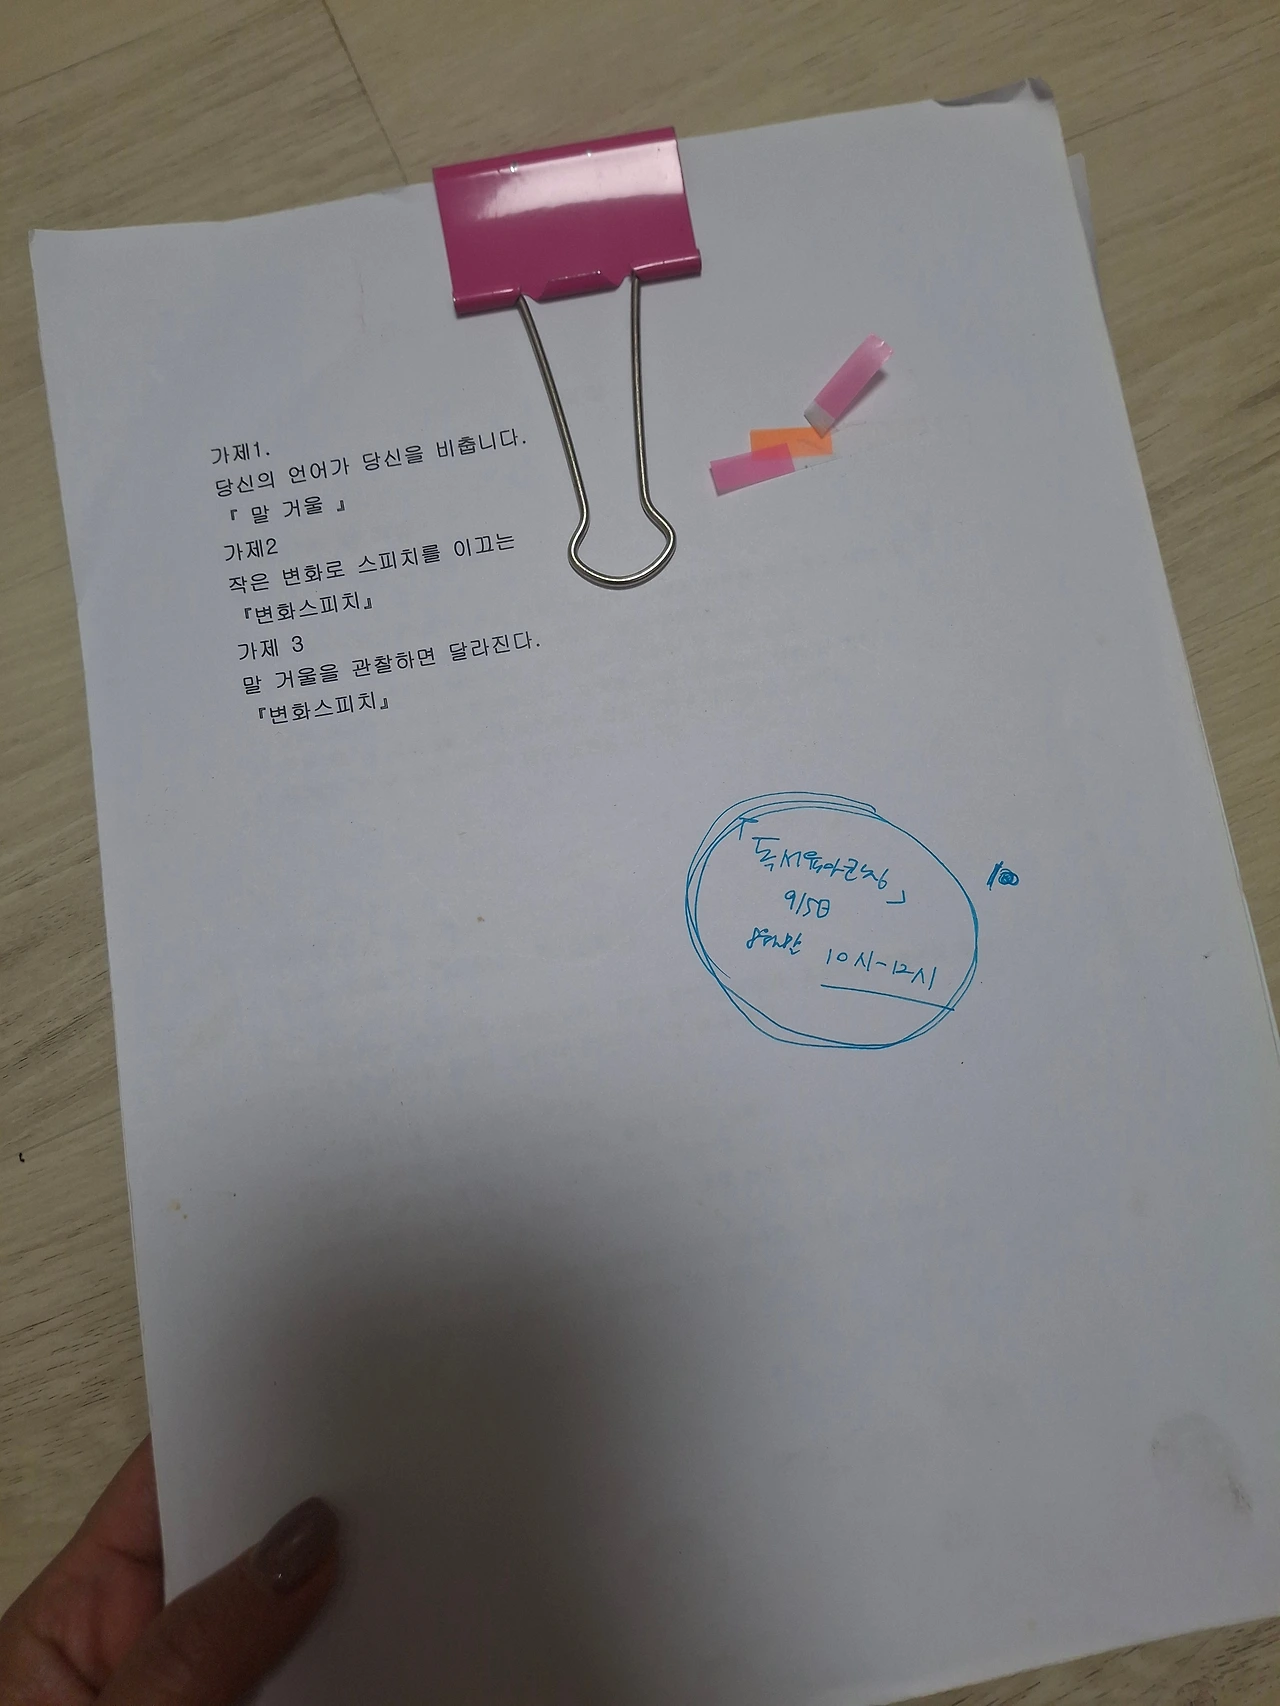 가제1.
당신의 언어가 당신을 비춥니다.
『 말 거울 』
가제2
작은 변화로 스피치를 이끄는
『변화스피치』
가제 3
말 거울을 관찰하면 달라진다.
『변화스피치』
9/5日
10시-12시